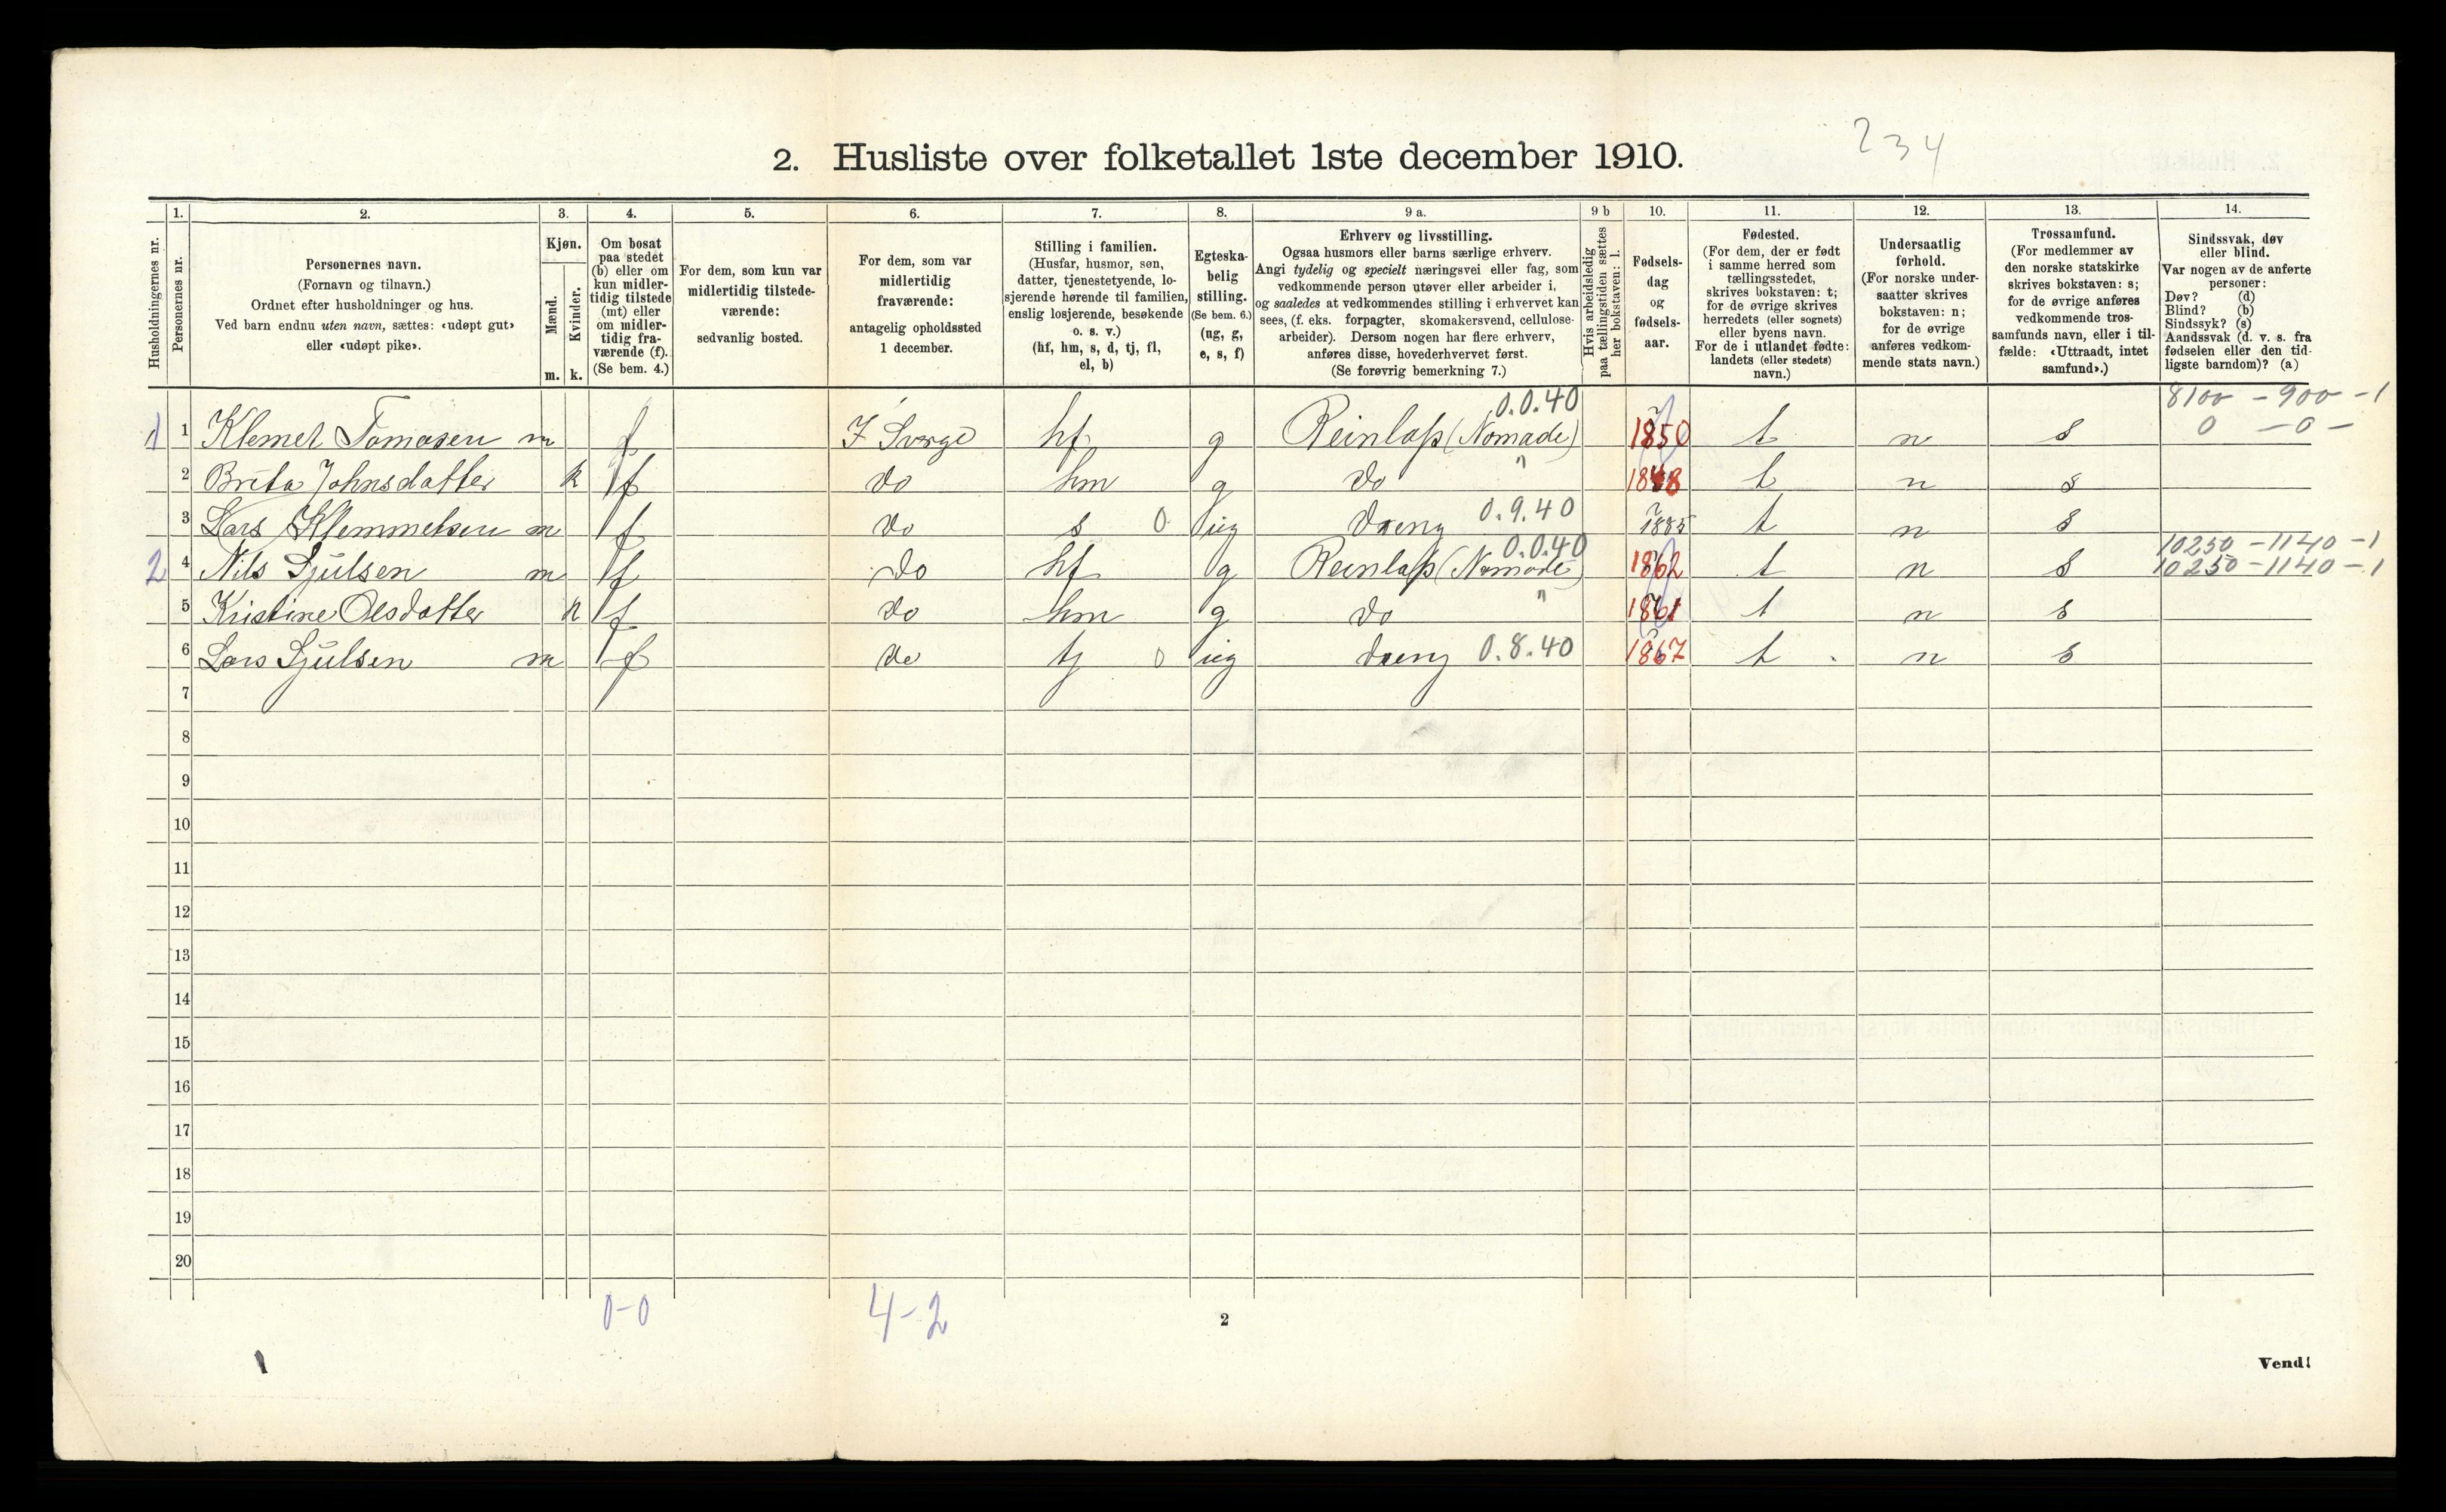 2. Husliste over folketallet 1ste december 1910.
234
Husholdningernes nr.
1.
Personernes nr.
2.
Personernes navn.
(Fornavn og tilnavn.)
Ordnet efter husholdninger og hus.
Ved barn endnu uten navn, sættes: «udøpt gut»
eller «udøpt pike».
3.
Kjøn.
Mænd.
Kvinder.
m. k.
4.
Om bosat
paa stedet
(b) eller om
kun midler-
tidig tilstede
(mt) eller
om midler-
tidig fra-
værende (f).
(Se bem. 4.)
5.
For dem, som kun var
midlertidig tilstede-
værende:
sedvanlig bosted.
6.
For dem, som var
midlertidig
fraværende:
antagelig opholdssted
1 december.
7.
Stilling i familien.
(Husfar, husmor, søn,
datter, tjenestetyende, lo-
sjerende hørende til familien,
enslig losjerende, besøkende
o. s. v.)
(hf, hm, s, d, tj, fl,
el, b)
8.
Egteska-
belig
stilling.
(Se bem. 6.)
(ug, g,
e, s, f)
9 a.
Erhverv og livsstilling.
Ogsaa husmors eller barns særlige erhverv.
Angi tydelig og specielt næringsvei eller fag, som
vedkommende person utøver eller arbeider i,
og saaledes at vedkommendes stilling i erhvervet kan
sees, (f. eks. forpagter, skomakersvend, cellulose-
arbeider). Dersom nogen har flere erhverv,
anføres disse, hovederhvervet først.
(Se forøvrig bemerkning 7.)
9 b
Hvis arbeidsledig
paa tællingstiden sættes
her bokstaven: l.
10.
Fødsels-
dag
og
fødsels-
aar.
11.
Fødested.
(For dem, der er født
i samme herred som
tællingsstedet,
skrives bokstaven: t;
for de øvrige skrives
herredets (eller sognets)
eller byens navn.
For de i utlandet fødte:
landets (eller stedets)
navn.)
12.
Undersaatlig
forhold.
(For norske under-
saatter skrives
bokstaven: n;
for de øvrige
anføres vedkom-
mende stats navn.)
13.
Trossamfund.
(For medlemmer av
den norske statskirke
skrives bokstaven: s;
for de øvrige anføres
vedkommende tros-
samfunds navn, eller i til-
fælde: «Uttraadt, intet
samfund».)
14.
Sindssvak, døv
eller blind.
Var nogen av de anførte
personer:
Døv? (d)
Blind? (b)
Sindssyk? (s)
Aandssvak (d. v. s. fra
fødselen eller den tid-
ligste barndom)? (a)
0.0.40 8100 - 900 - 1
1 1 Klemet Tomasen m f I Sverge hf g Reinlap (Nomade) 1850 t n s 0 - 0 -
2 Brita Johnsdatter k f do hm g do " 1848 t n s
3 Lars Klemmetsen m f do s 0 ug dreng 0.9.40 1885 t n s
0.0.40 10250 - 1140 - 1
2 4 Nils Sjulsen m f do hf g Reinlap (Nomade) 1862 t n s 10250 - 1140 - 1
5 Kristine Olsdatter k f do hm g do " 1861 t n s
6 Lars Sjulsen m f do tj 0 ug dreng 0.8.40 1867 t n s
7
8
9
10
11
12
13
14
15
16
17
18
19
20
0-0 4-2
2
Vend!